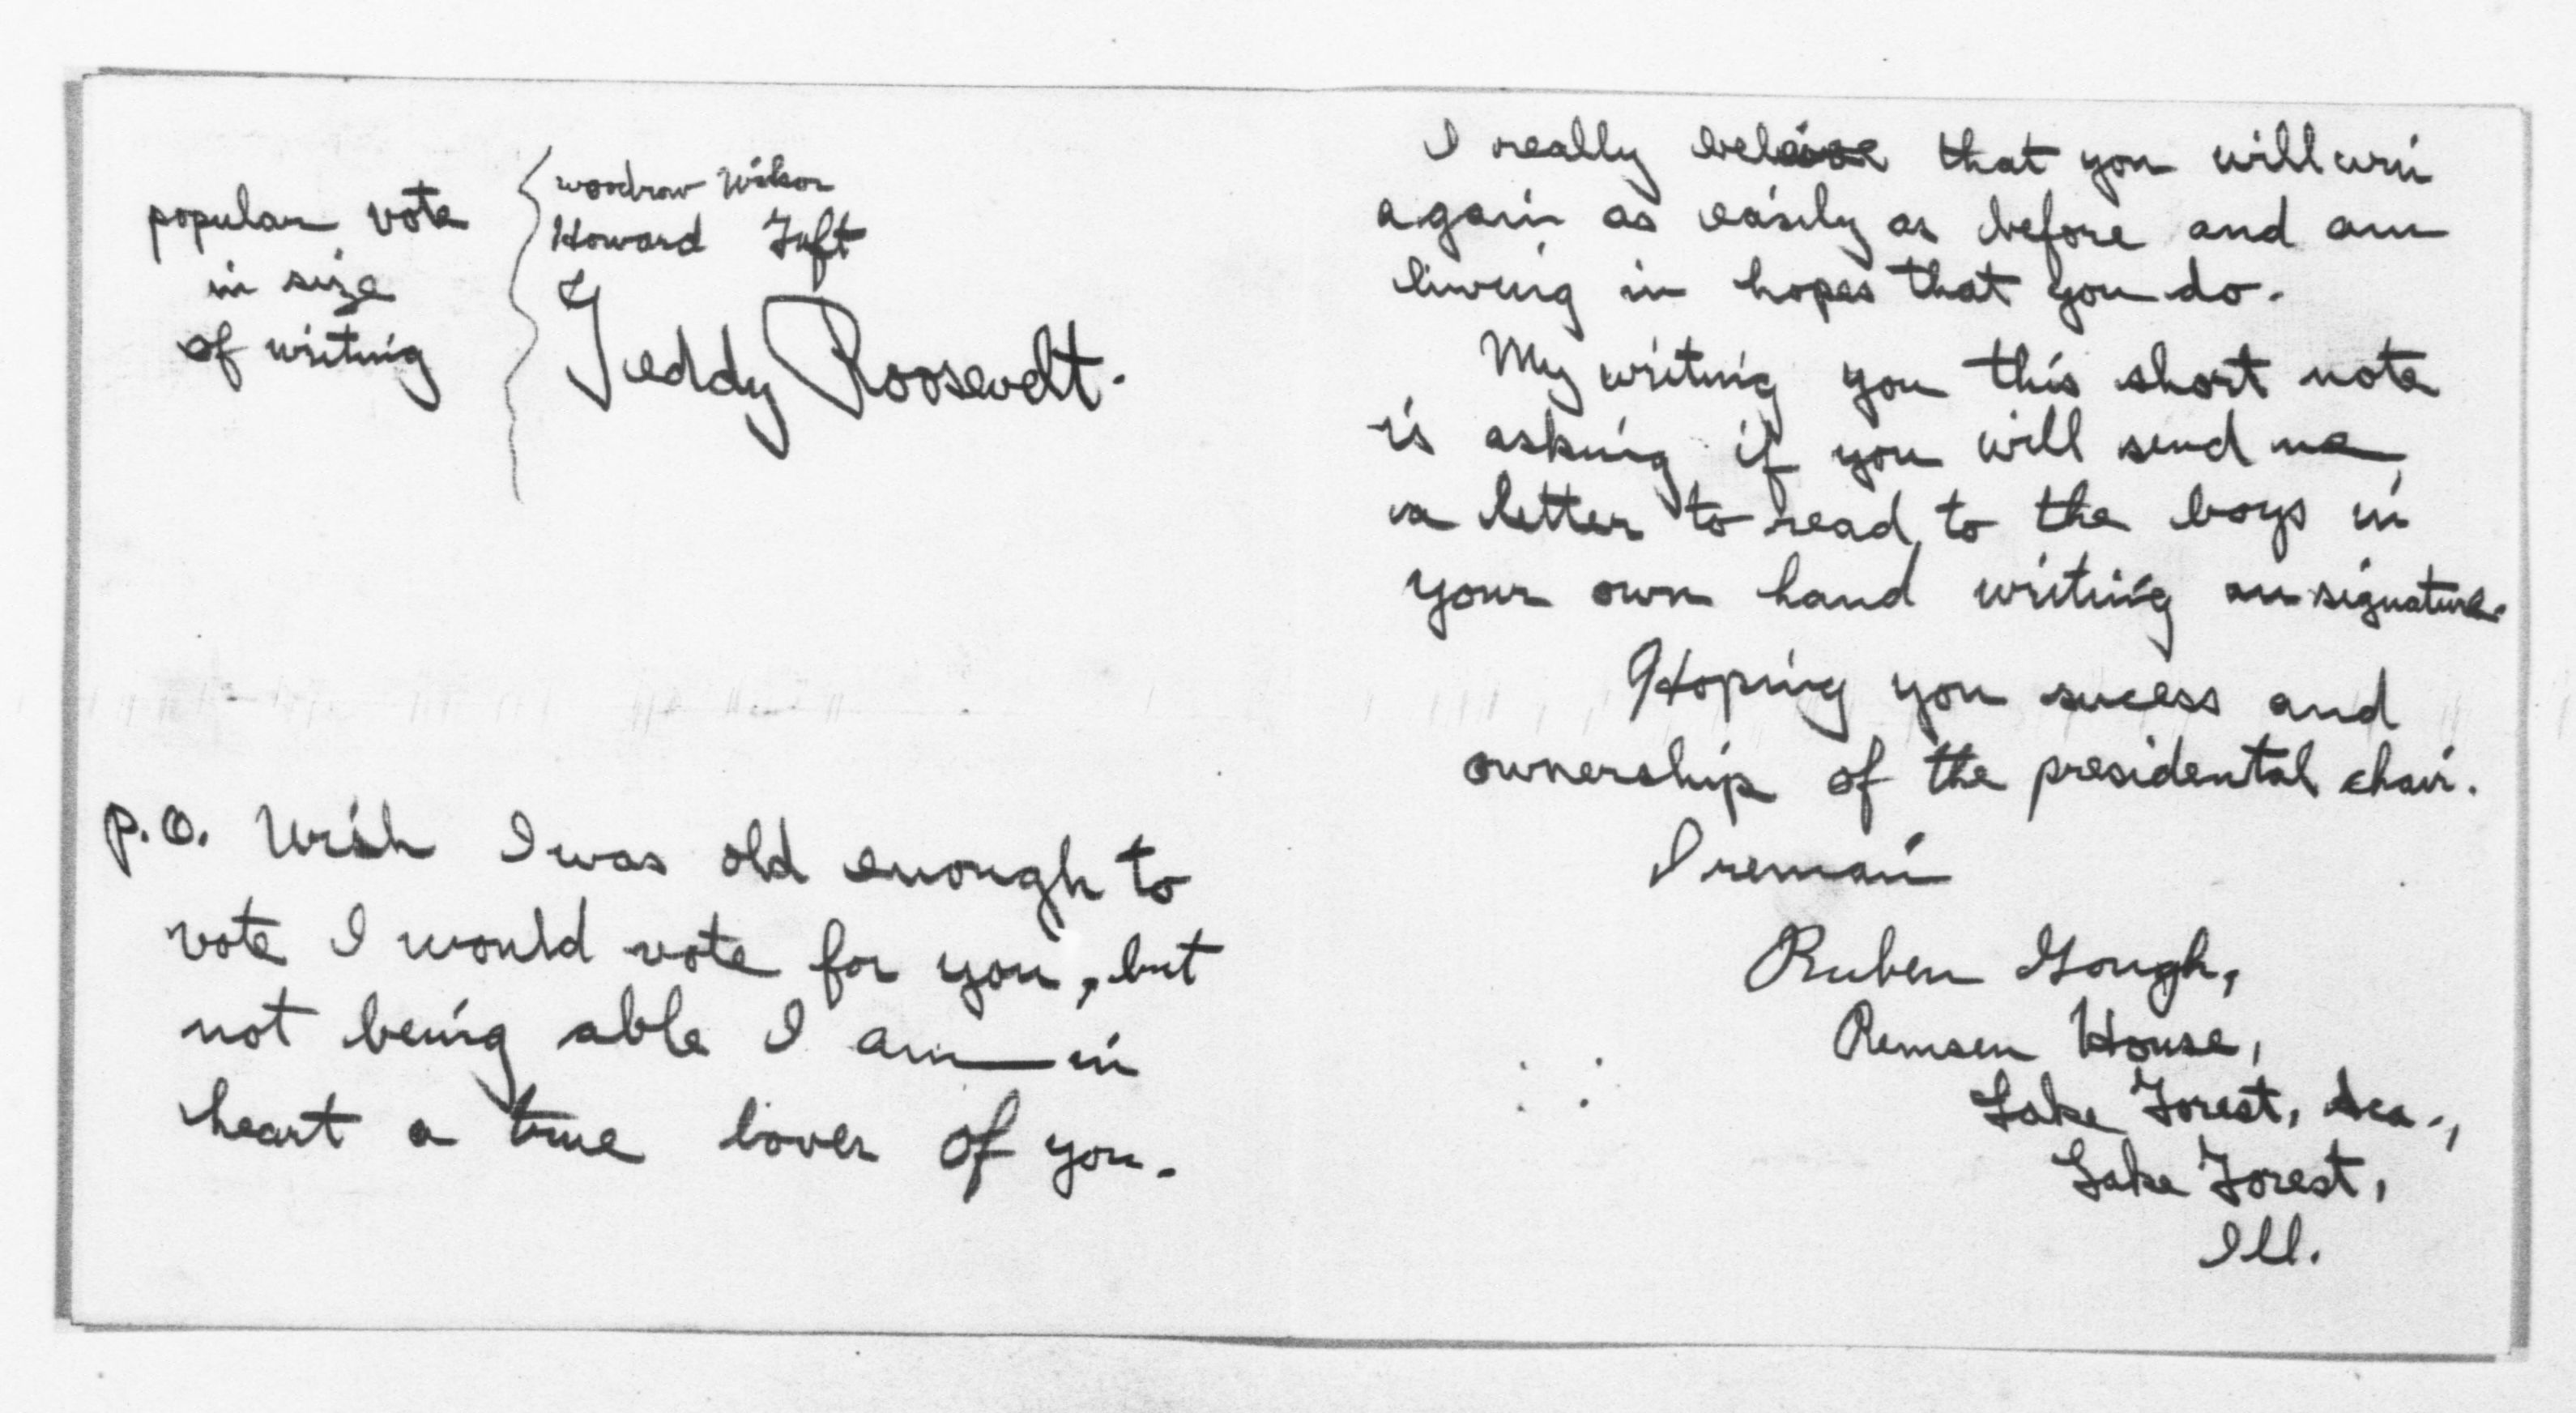 I really beleive that you will win
again as easily as before and am
living in hopes that you do.
My writing you this short note
is asking if you will send me
a letter to read to the boys in
your own hand writing an signature.
Hoping you sucess and
ownership of the presidental chair.
I remain
Ruben Gough,
Remsen House,
Lake Forest, Aca.,
Lake Forest,
Ill.
popular vote
in size
of writing
Woodrow Wilson
Howard Taft
Teddy Roosevelt.
P.O. Wish I was old enough to
vote I would vote for you, but
not being able I am in
heart a true lover of you.